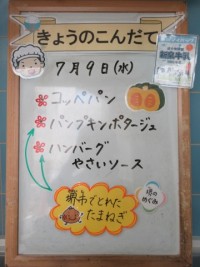 きょうのこんだて
7月9日(水)
コッペパン
パンプキンポタージュ
ハンバーグ
やさいソース
堺市でとれた
たまねぎ
堺の
めぐみ